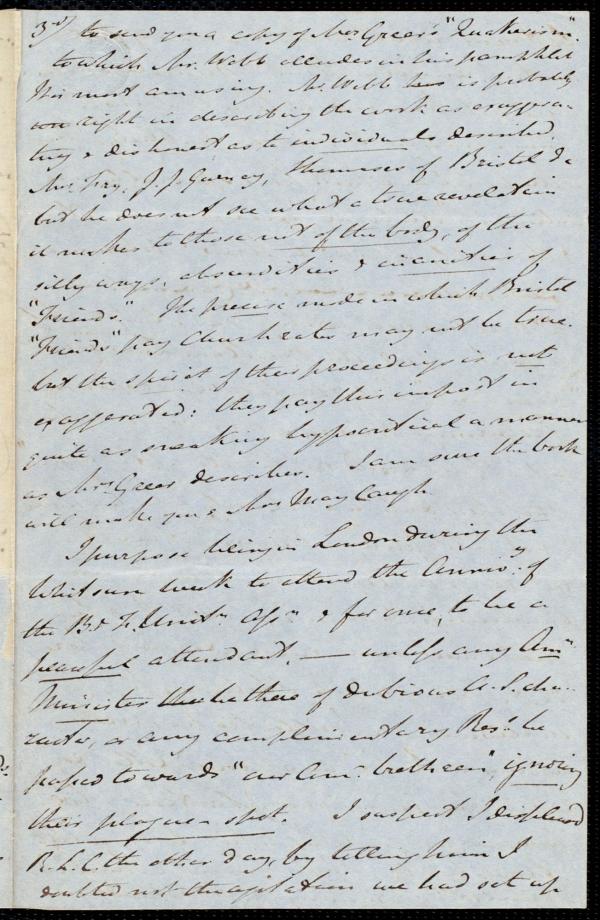 3rd/ to send you a copy of Mrs Greer's "Quakerism".
to which Mr. Webb alludes in his pamphlet
Tis most amusing. Mr. Webb has is probably
right in describing the work as exaggera-
ting & dishonest as to individuals described,
Mrs Fry, J. J. Gurney, of Bristol &c
but he does not see what a true revelation
it makes to those not of the body, of the
silly ways, absurdities & inanities of
"Friends". The precise mode in which Bristol
"Friends" pay Church rates may not be true.
but the spirit of their proceedings is not
exaggerated: they pay this impost in
quite as sneaking hypocritical a manner
as Mrs Greer describes. I am sure the book
will make you & Mrs May laugh.
I purpose being in London during the
Whitsun week to attend the Anniv.y of
the B. & F. Unit.n Ass.n & for once, to be a
peaceful attendant, — unless any Am.n
Minister should be there of dubious A. S. cha-
racter, or any complimentary Res.n be
passed towards "our Am.n brethren", ignoring
their plague spot. I suspect I displeased
R. L. C. the other day, by telling him I
doubted not the agitation we had set up